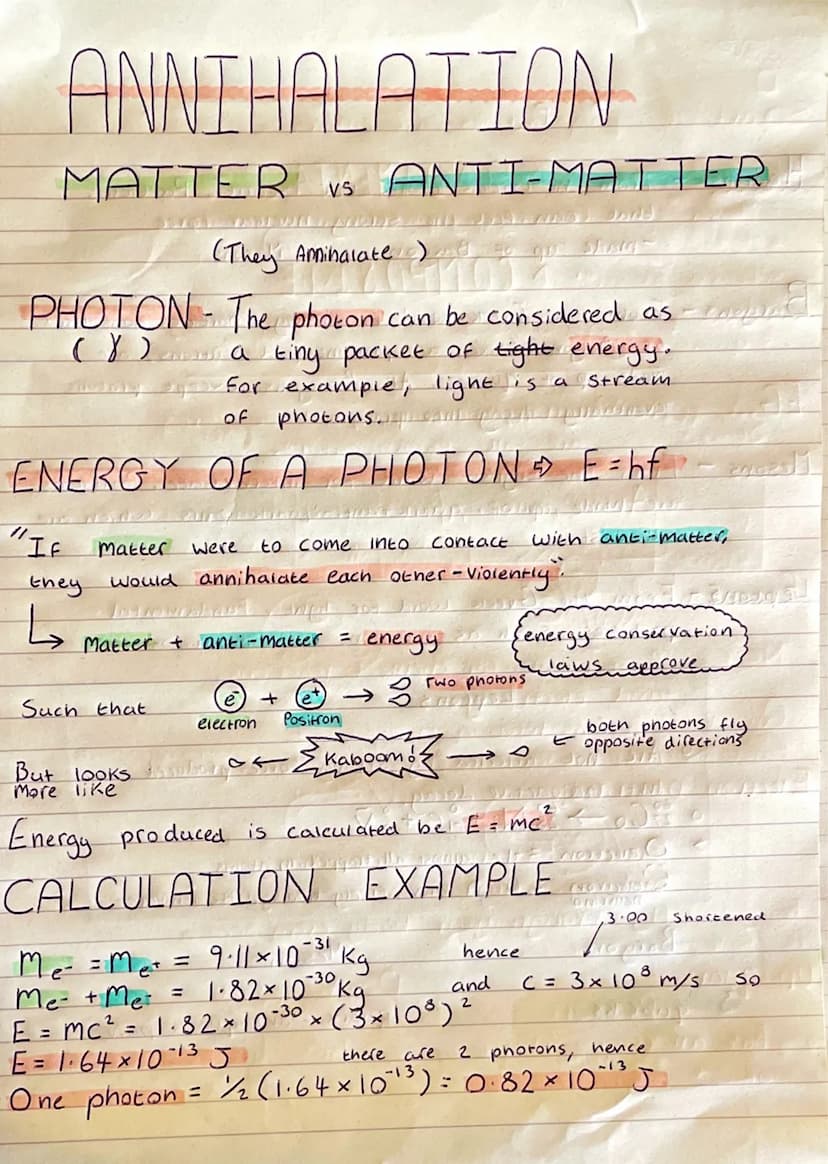 ANNIHALATION
MATTER vs ANTI-MATTER
(They Annihalate)
PHOTON - The photon can be considered as
(γ) a tiny packet of tight energy.
For example, light is a stream
of photons.
ENERGY OF A PHOTON ⇨ E=hf
"If matter were to come into contact with anti-matter,
they would annihalate each other - violently".
↳ Matter + anti-matter = energy
energy conservation
laws approve
Such that e⁻ + e⁺ → Two photons
electron Positron
But looks
more like
← Kaboom! →
← both photons fly
opposite directions
Energy produced is calculated be E = mc²
CALCULATION EXAMPLE
3.00 shortened
Me- = Me+ = 9.11×10⁻³¹ Kg hence
Me- + Me+ = 1.82×10⁻³⁰ Kg and C = 3×10⁸ m/s so
E = mc² = 1.82×10⁻³⁰ × (3×10⁸)²
E = 1.64×10⁻¹³ J there are 2 photons, hence
One photon = ½(1.64×10⁻¹³) = 0.82×10⁻¹³ J